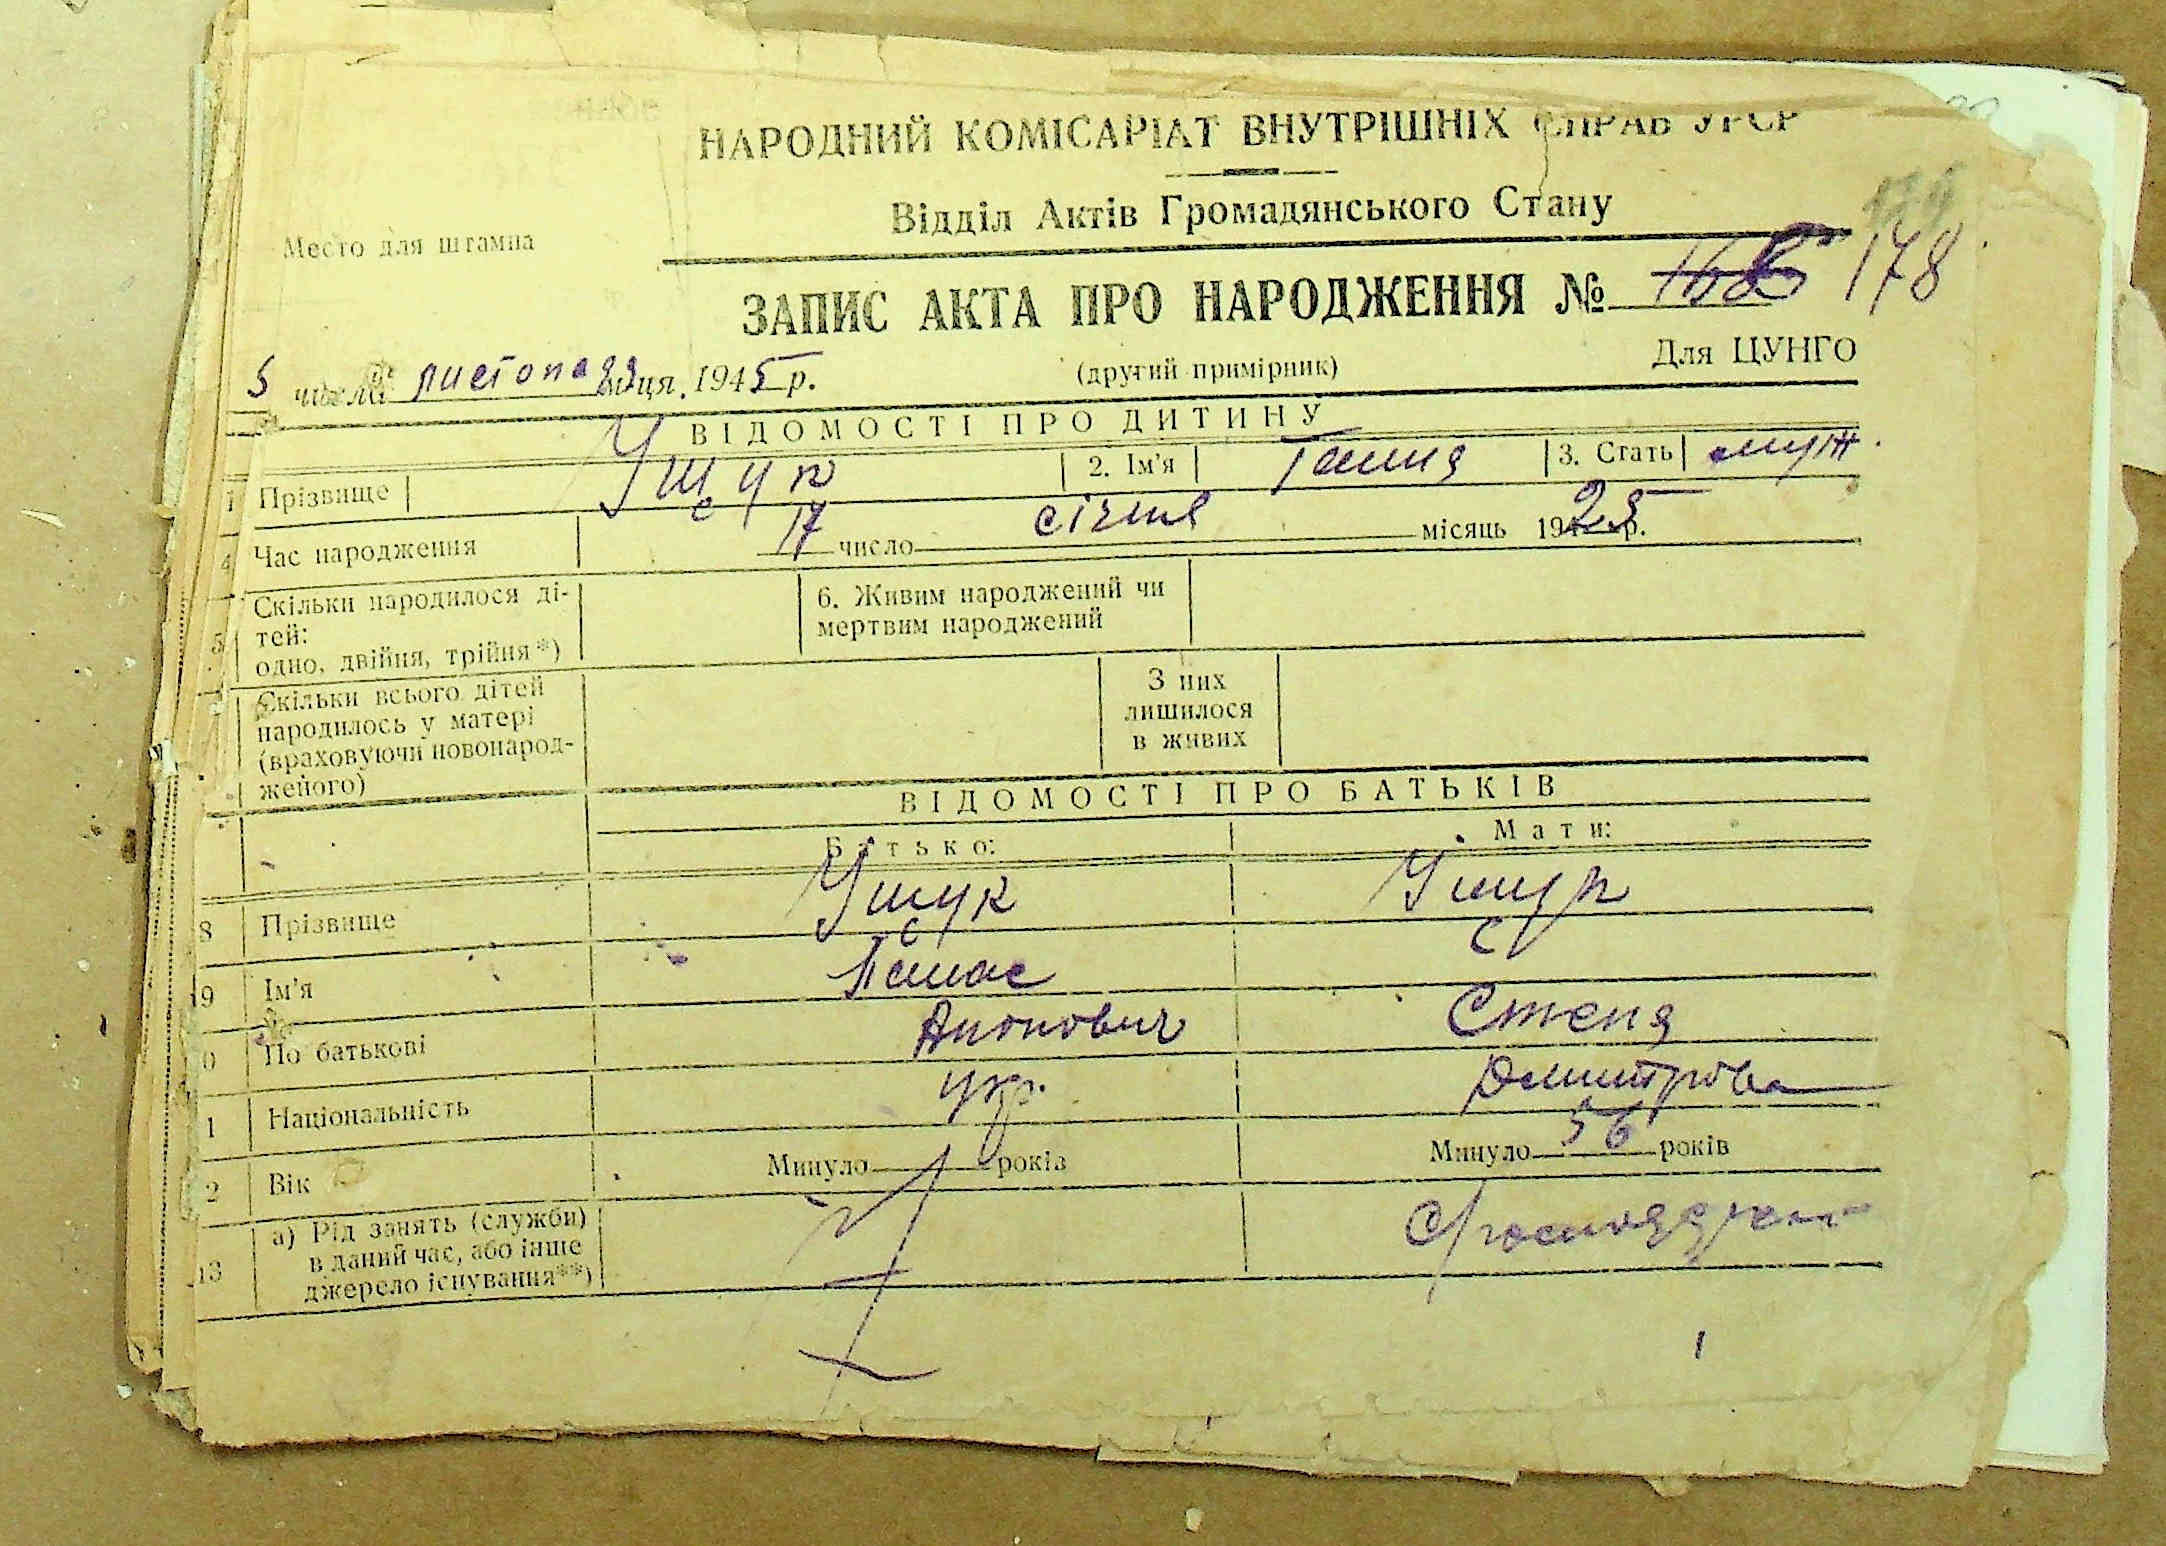 НАРОДНИЙ КОМІСАРІАТ ВНУТРІШНІХ СПРАВ УРСР
Відділ Актів Громадянського Стану
Место для штампа
ЗАПИС АКТА ПРО НАРОДЖЕННЯ № 178
5 числа листопада м-ця 1945 р.
(другий примірник)
Для ЦУНГО
ВІДОМОСТІ ПРО ДИТИНУ
1 Прізвище Ущук 2. Ім'я Ганна 3. Стать муж.
4 Час народження 17 число січня місяць 1925 р.
5 Скільки народилося ді-
тей:
одно, двійня, трійня*)
6. Живим народжений чи
мертвим народжений
Скільки всього дітей
народилось у матері
(враховуючи новонарод-
женого)
З них
лишилося
в живих
ВІДОМОСТІ ПРО БАТЬКІВ
Батько: Мати:
8 Прізвище Ущук Ущук
9 Ім'я Панас Степя
0 По батькові Дмитрова
1 Національність укр.
2 Вік Минуло років Минуло 56 років
13 а) Рід занять (служби)
в даний час, або інше
джерело існування**)